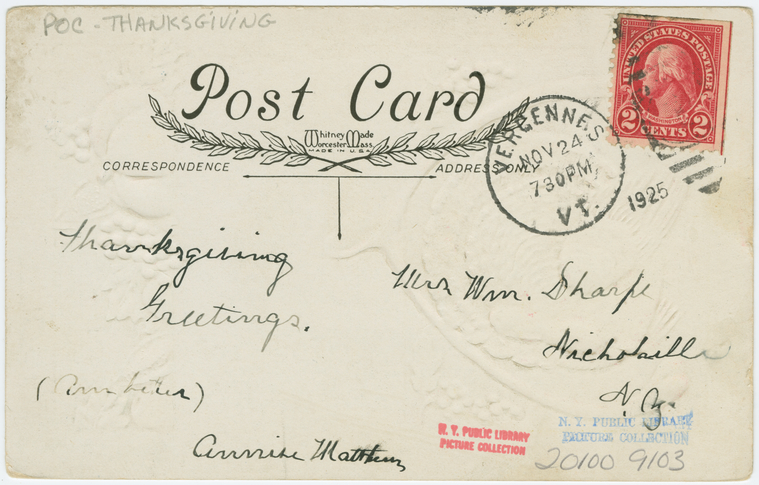 POC - THANKSGIVING
Post Card
Whitney Made
Worcester, Mass.
MADE IN U.S.A.
CORRESPONDENCE
ADDRESS ONLY
UNITED STATES POSTAGE
WASHINGTON
2 CENTS 2
VERGENNES
NOV 24
730 PM
VT.
1925
Thanksgiving
Greetings.
Annise Matthews
Mrs Wm. Sharpe
Nicholville
N.Y.
N. Y. PUBLIC LIBRARY
PICTURE COLLECTION
N. Y. PUBLIC LIBRARY
PICTURE COLLECTION
20100 9103